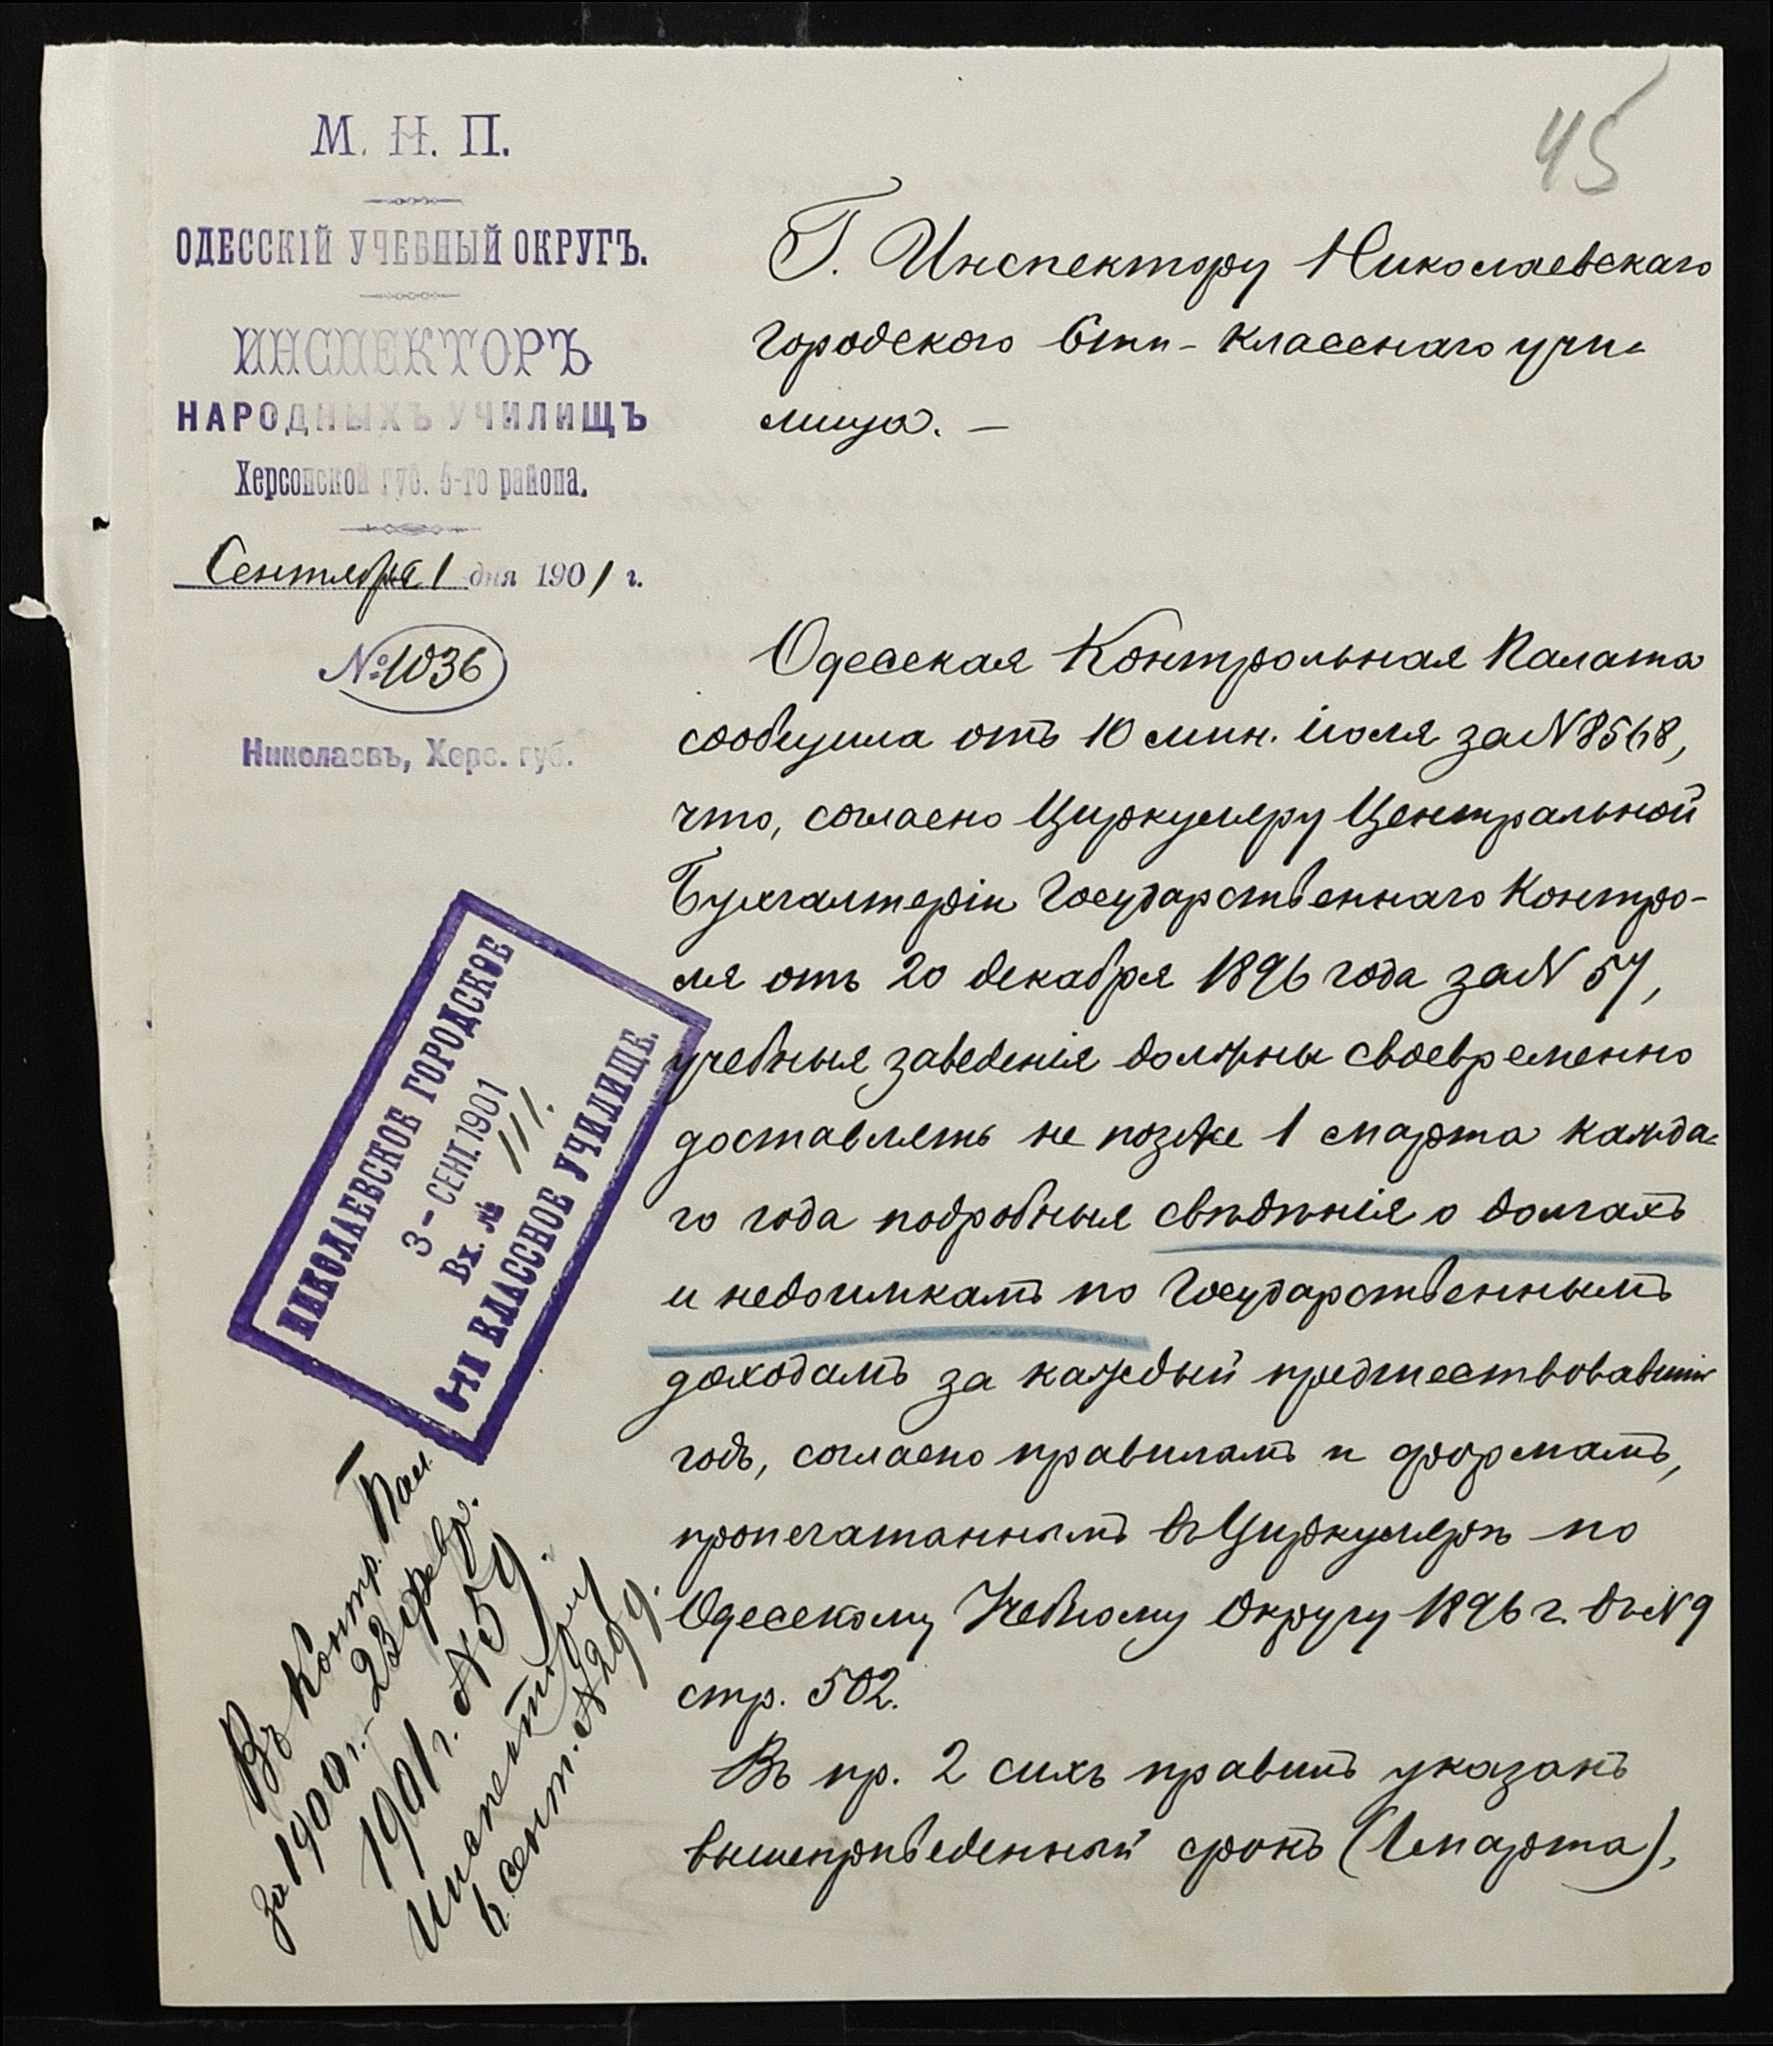 45
М. Н. П.
ОДЕССКІЙ УЧЕБНЫЙ ОКРУГЪ.
ИНСПЕКТОРЪ
НАРОДНЫХЪ УЧИЛИЩЪ
Херсонской губ. 5-го района.
Сентября 1 дня 1901 г.
№ 1036
Николаевъ, Херс. губ.
Г. Инспектору Николаевскаго
городского 6ти-класснаго учи-
лища. —
Одесская Контрольная Палата
сообщила отъ 10 мин. іюля за N 8568,
что, согласно Циркуляру Центральной
Бухгалтеріи Государственнаго Контро-
ля отъ 20 декабря 1896 года за N 57,
учебныя заведенія должны своевременно
доставлять не позже 1 марта кажда-
го года подробныя свѣдѣнія о долгахъ
и недоимкамъ по Государственнымъ
доходамъ за каждый предшествовавшій
годъ, согласно правиламъ и формамъ,
пропечатаннымъ въ Циркулярѣ по
Одесскому Учебному Округу 1896 г. въ N 9
стр. 502.
Въ пр. 2 сихъ правилъ указанъ
вышеприведенный срокъ (1 марта),
НИКОЛАЕВСКОЕ ГОРОДСКОЕ
3 - СЕНТ. 1901
Вх. № 111.
6-ТИ КЛАССНОЕ УЧИЛИЩЕ.
Въ Контр. Пал.
за 1900 г. - 23 февр.
1901 г. N 59.
Инспектору
6 сент. N 299.